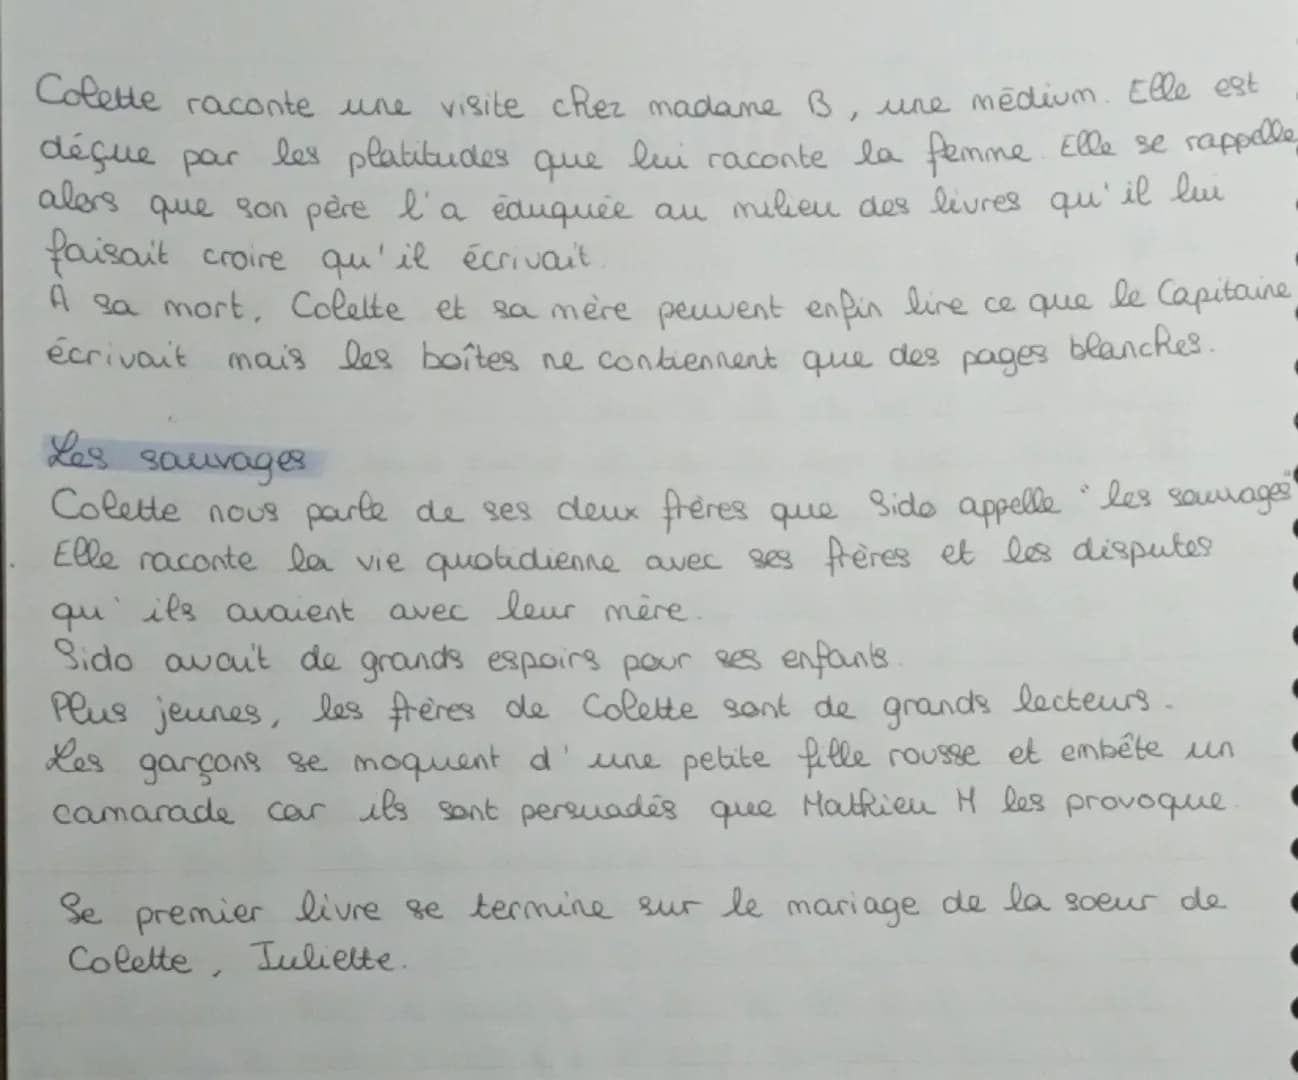 Colette raconte une visite chez madame B, une médium. Elle est
déçue par les platitudes que lui raconte la femme. Elle se rappelle
alors que son père l'a éduquée au milieu des livres qu'il lui
faisait croire qu'il écrivait.
À sa mort, Colette et sa mère peuvent enfin lire ce que le Capitaine
écrivait mais les boîtes ne contiennent que des pages blanches.
Les sauvages
Colette nous parle de ses deux frères que Sido appelle "les sauvages"
Elle raconte la vie quotidienne avec ses frères et les disputes
qu'ils avaient avec leur mère.
Sido avait de grands espoirs pour ses enfants.
Plus jeunes, les frères de Colette sont de grands lecteurs.
Les garçons se moquent d'une petite fille rousse et embête un
camarade car ils sont persuadés que Mathieu M les provoque.
Se premier livre se termine sur le mariage de la soeur de
Colette, Juliette.